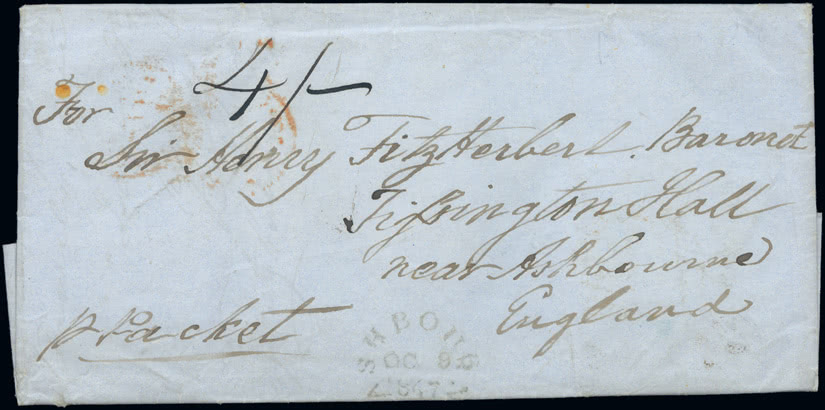 4/-
For
Sir Henry FitzHerbert. Baronet
Tißington Hall
near Ashbourne
England
p Packet
SHBOR
OC